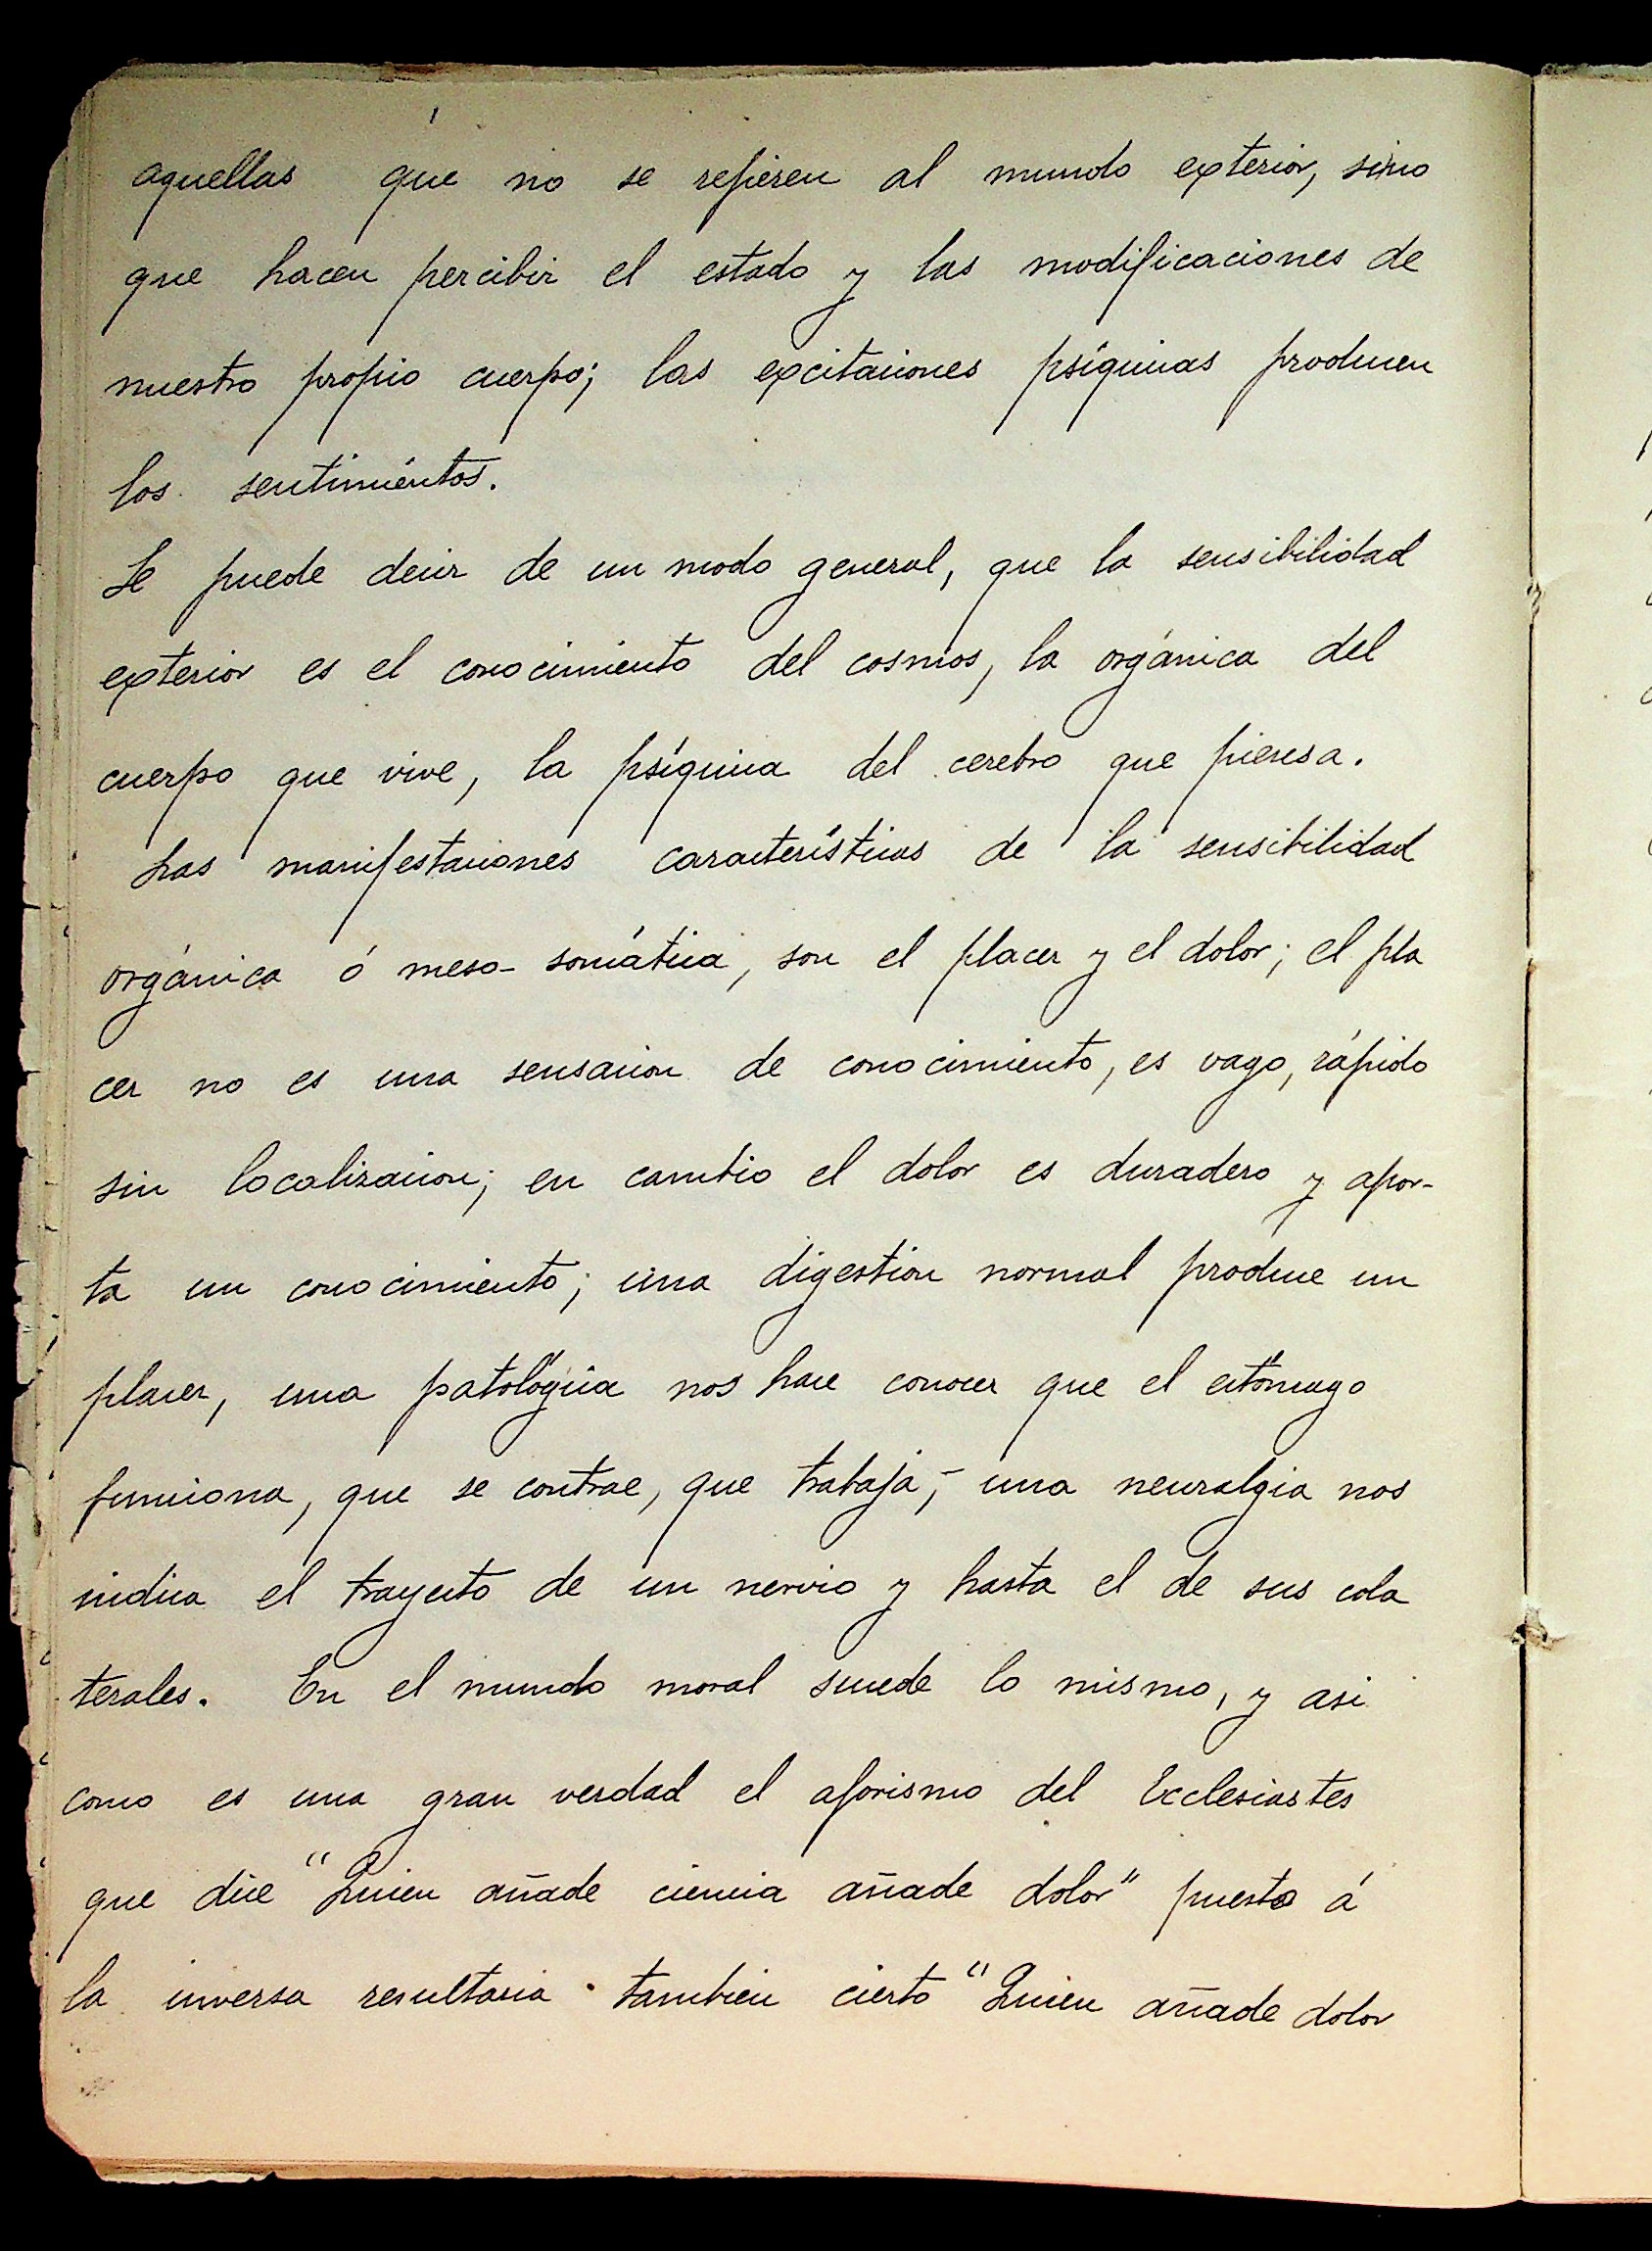 aquellas que no se refieren al mundo exterior, sino
que hacen percibir el estado y las modificaciones de
nuestro propio cuerpo; las excitaciones psíquicas producen
los sentimientos.
Se puede decir de un modo general, que la sensibilidad
exterior es el conocimiento del cosmos, la orgánica del
cuerpo que vive, la psíquica del cerebro que piensa.
Las manifestaciones características de la sensibilidad
orgánica ó meso-somática, son el placer y el dolor; el pla
cer no es una sensacion de conocimiento, es vago, rápido
sin localizacion; en cambio el dolor es duradero y apor-
ta un conocimiento; una digestion normal produce un
placer, una patológica nos hace conocer que el estómago
funciona, que se contrae, que trabaja; una neuralgia nos
indica el trayecto de un nervio y hasta el de sus cola
terales. En el mundo moral sucede lo mismo, y asi
como es una gran verdad el aforismo del Ecclesiastes
que dice "Quien añade ciencia añade dolor" puesto á
la inversa resultaria tambien cierto "Quien añade dolor